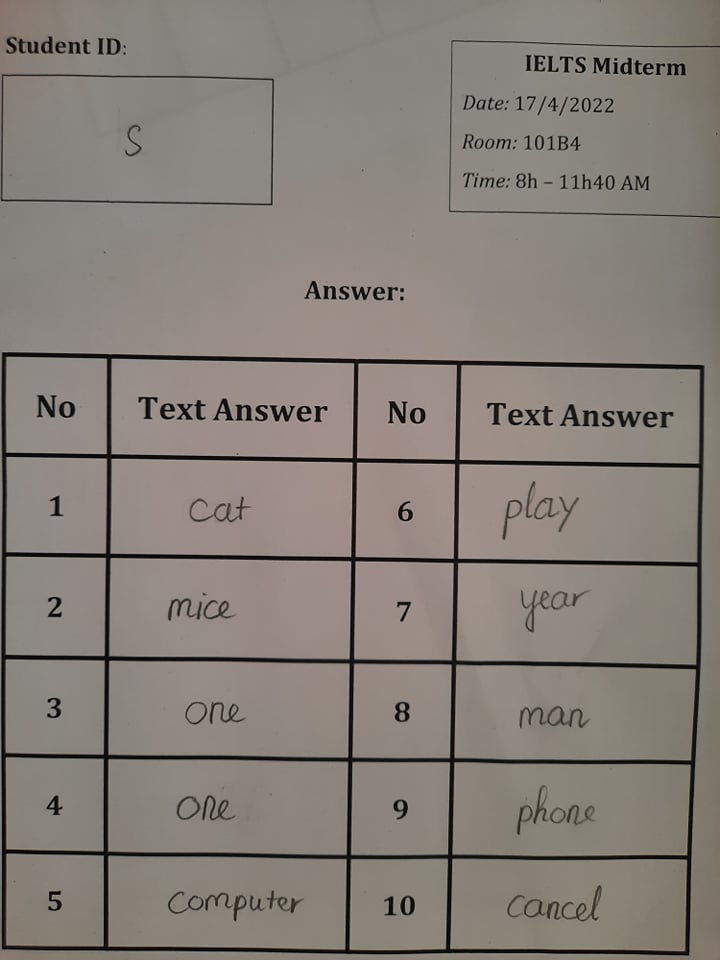 Student ID:
S
IELTS Midterm
Date: 17/4/2022
Room: 101B4
Time: 8h – 11h40 AM
Answer:
No Text Answer No Text Answer
1 cat 6 play
2 mice 7 year
3 one 8 man
4 one 9 phone
5 computer 10 cancel